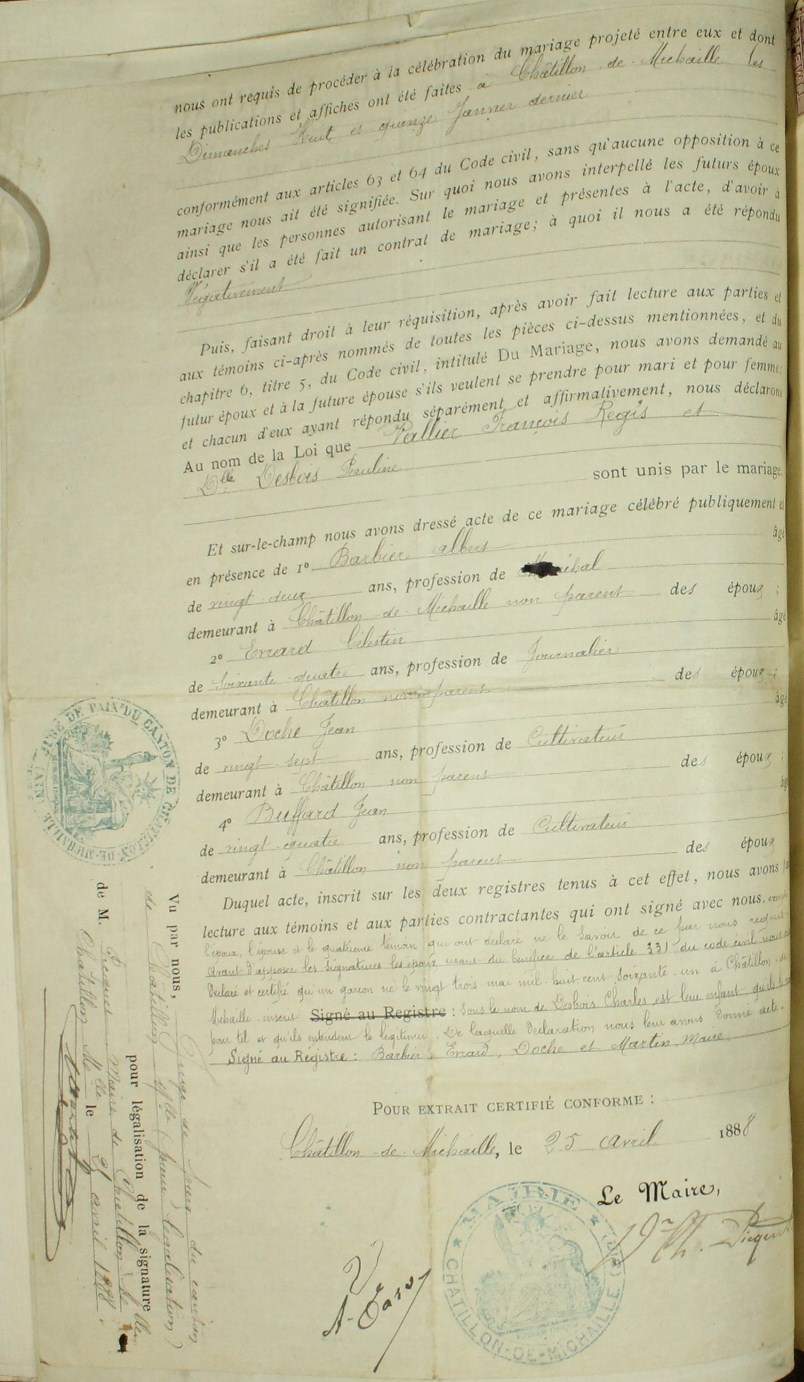 nous ont requis de procéder à la célébration du mariage projeté entre eux et dont
les publications et affiches ont été faites à Châtillon de Michaille les
Dimanches huit et quinze Janvier dernier
conformément aux articles 63 et 64 du Code civil, sans qu'aucune opposition à ce
mariage nous ait été signifiée. Sur quoi nous avons interpellé les futurs époux
ainsi que les personnes autorisant le mariage et présentes à l'acte, d'avoir à
déclarer s'il a été fait un contrat de mariage; à quoi il nous a été répondu
Négativement
Puis, faisant droit à leur réquisition, après avoir fait lecture aux parties et
aux témoins ci-après nommés de toutes les pièces ci-dessus mentionnées, et du
chapitre 6, titre 5, du Code civil, intitulé Du Mariage, nous avons demandé au
futur époux et à la future épouse s'ils veulent se prendre pour mari et pour femme;
et chacun d'eux ayant répondu séparément et affirmativement, nous déclarons
Au nom de la Loi que Vallier François Regis et
Dlle Desbois Pauline
sont unis par le mariage.
Et sur-le-champ nous avons dressé acte de ce mariage célébré publiquement et
en présence de 1° Barbier albus âgé
de vingt deux ans, profession de
demeurant à Châtillon de Michaille non parent des époux;
2° Errard Célestin âgé
de Soixante quatre ans, profession de Journalier
demeurant à Châtillon non parent des époux;
3° Doche Jean âgé
de vingt sept ans, profession de Cultivateur
demeurant à Châtillon non parent des époux;
4° Buffard Jean âgé
de vingt quatre ans, profession de Cultivateur
demeurant à Châtillon non parent des époux
Duquel acte, inscrit sur les deux registres tenus à cet effet, nous avons
lecture aux témoins et aux parties contractantes qui ont signé avec nous,
l'époux, l'épouse et le quatrième témoin qui ont déclaré ne le savoir de ce par nous requis
avant d'apposer les signatures les époux usant du bénéfice de l'article 331 du code civil
Déclaré et certifié qu'un garçon né le vingt trois mai mil huit cent soixante un à Châtillon de
Michaille inscrit Signé au Registre: sous le nom de Desbois Charles est leur enfant
pour tel et qu'ils entendent le légitimer. De laquelle Déclaration nous leur avons donné acte.
Signé au Registre: Barbier, Errard, Doche et Martin Maire
POUR EXTRAIT CERTIFIÉ CONFORME:
Châtillon de Michaille, le 25 avril 1888
Le Maire,
MAIRIE
CHATILLON-DE-MICHAILLE
JUSTICE DE PAIX DU CANTON DE CHATILLON-DE-MICHAILLE
Vu par nous, Juge de Paix du canton
de Châtillon Mlle
pour légalisation de la signature
de M. Maire de Châtillon Mlle
Châtillon Mlle le avril 1888.